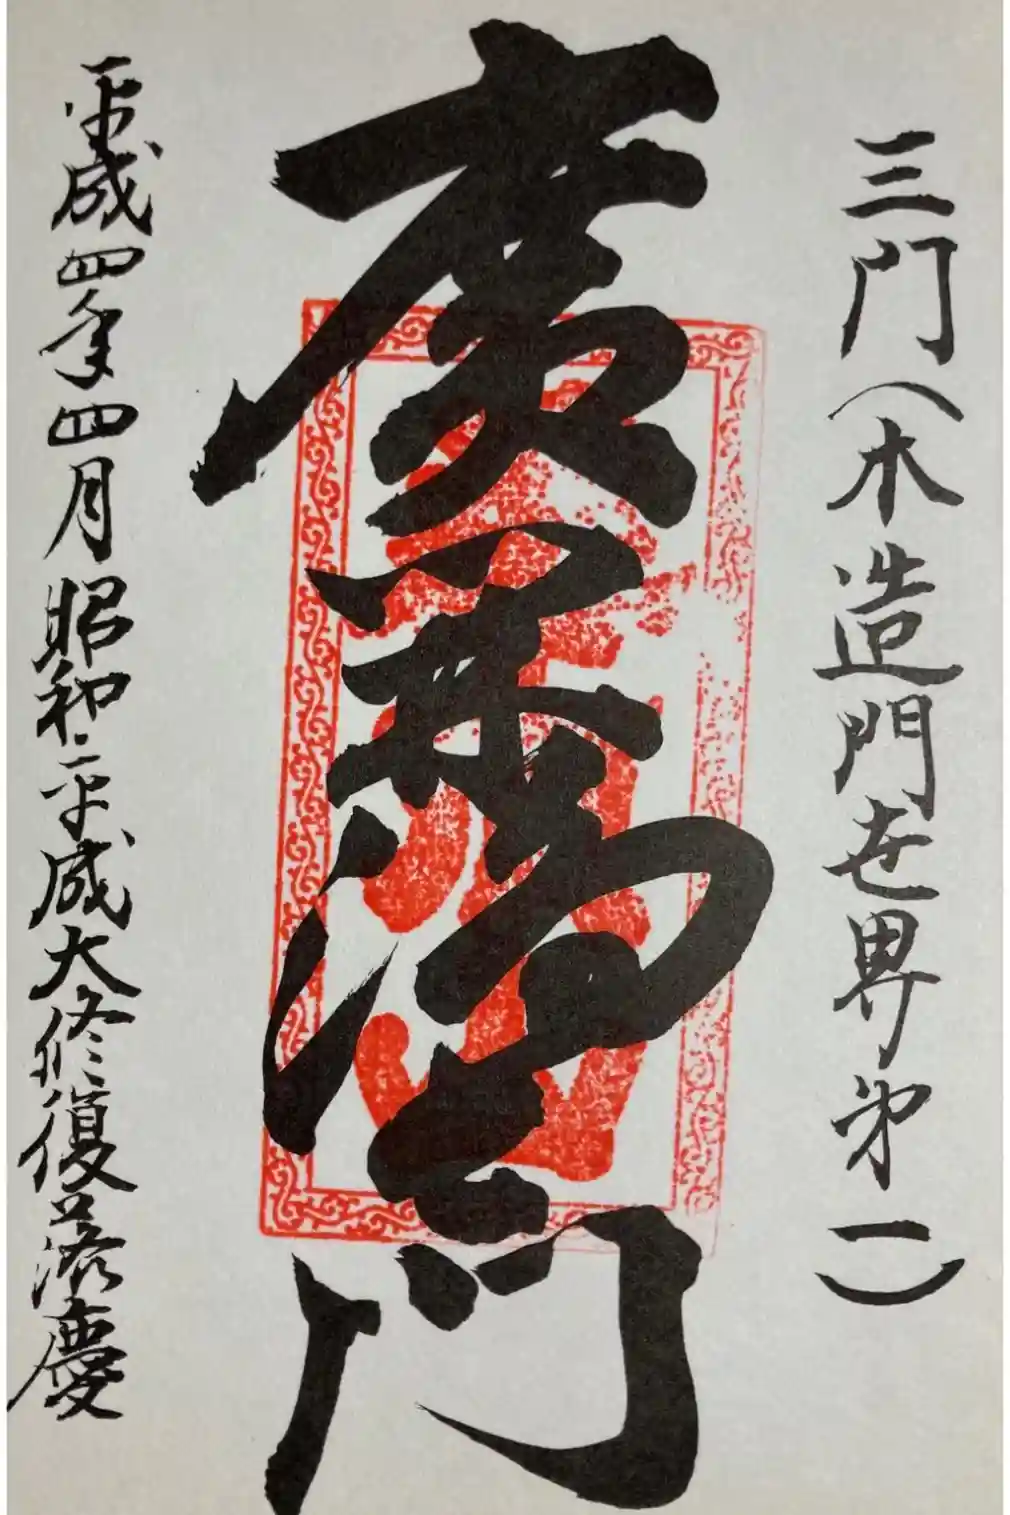 三門(木造門世界第一)
廣開浄土門
平成四年四月昭和平成大修復落慶